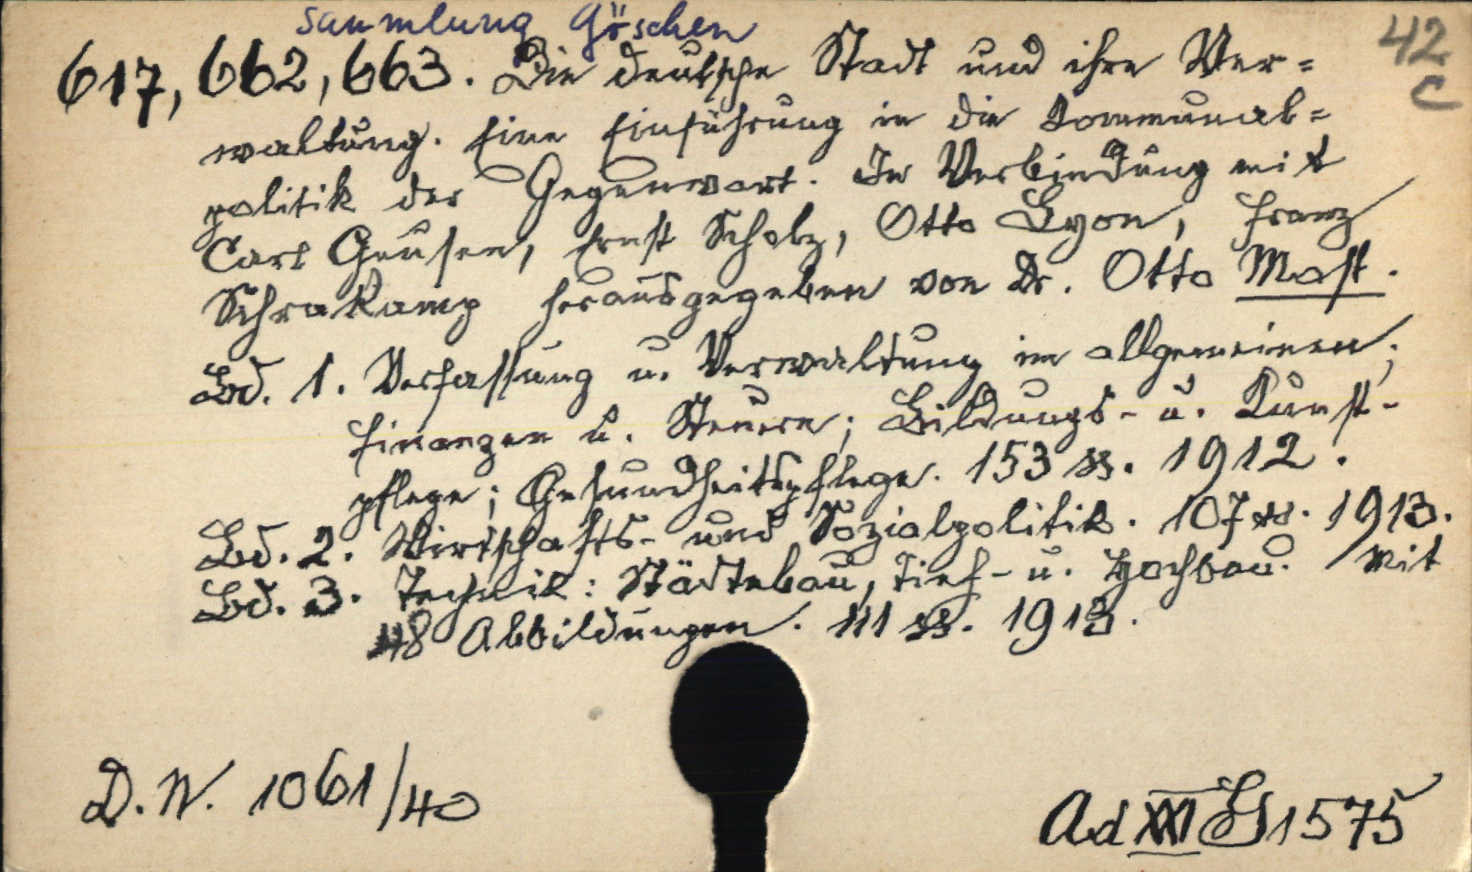 Sammlung Göschen
42
C
617, 662, 663. Die deutsche Stadt und ihre Ver=
waltung. Eine Einführung in die Kommunal=
politik der Gegenwart. In Verbindung mit
Carl Geusen, Ernst Scholz, Otto Lyon, Franz
Schrakamp herausgegeben von Dr. Otto Most.
Bd. 1. Verfassung u. Verwaltung im allgemeinen;
Finanzen u. Steuern; Bildungs- u. Kunst-
pflege; Gesundheitspflege. 153 SS. 1912.
Bd. 2. Wirtschafts- und Sozialpolitik. 107 SS. 1913.
Bd. 3. Technik: Städtebau, Tief- u. Hochbau. Mit
48 Abbildungen. 111 SS. 1913.
D. W. 1061/40
Ad XXI 1575